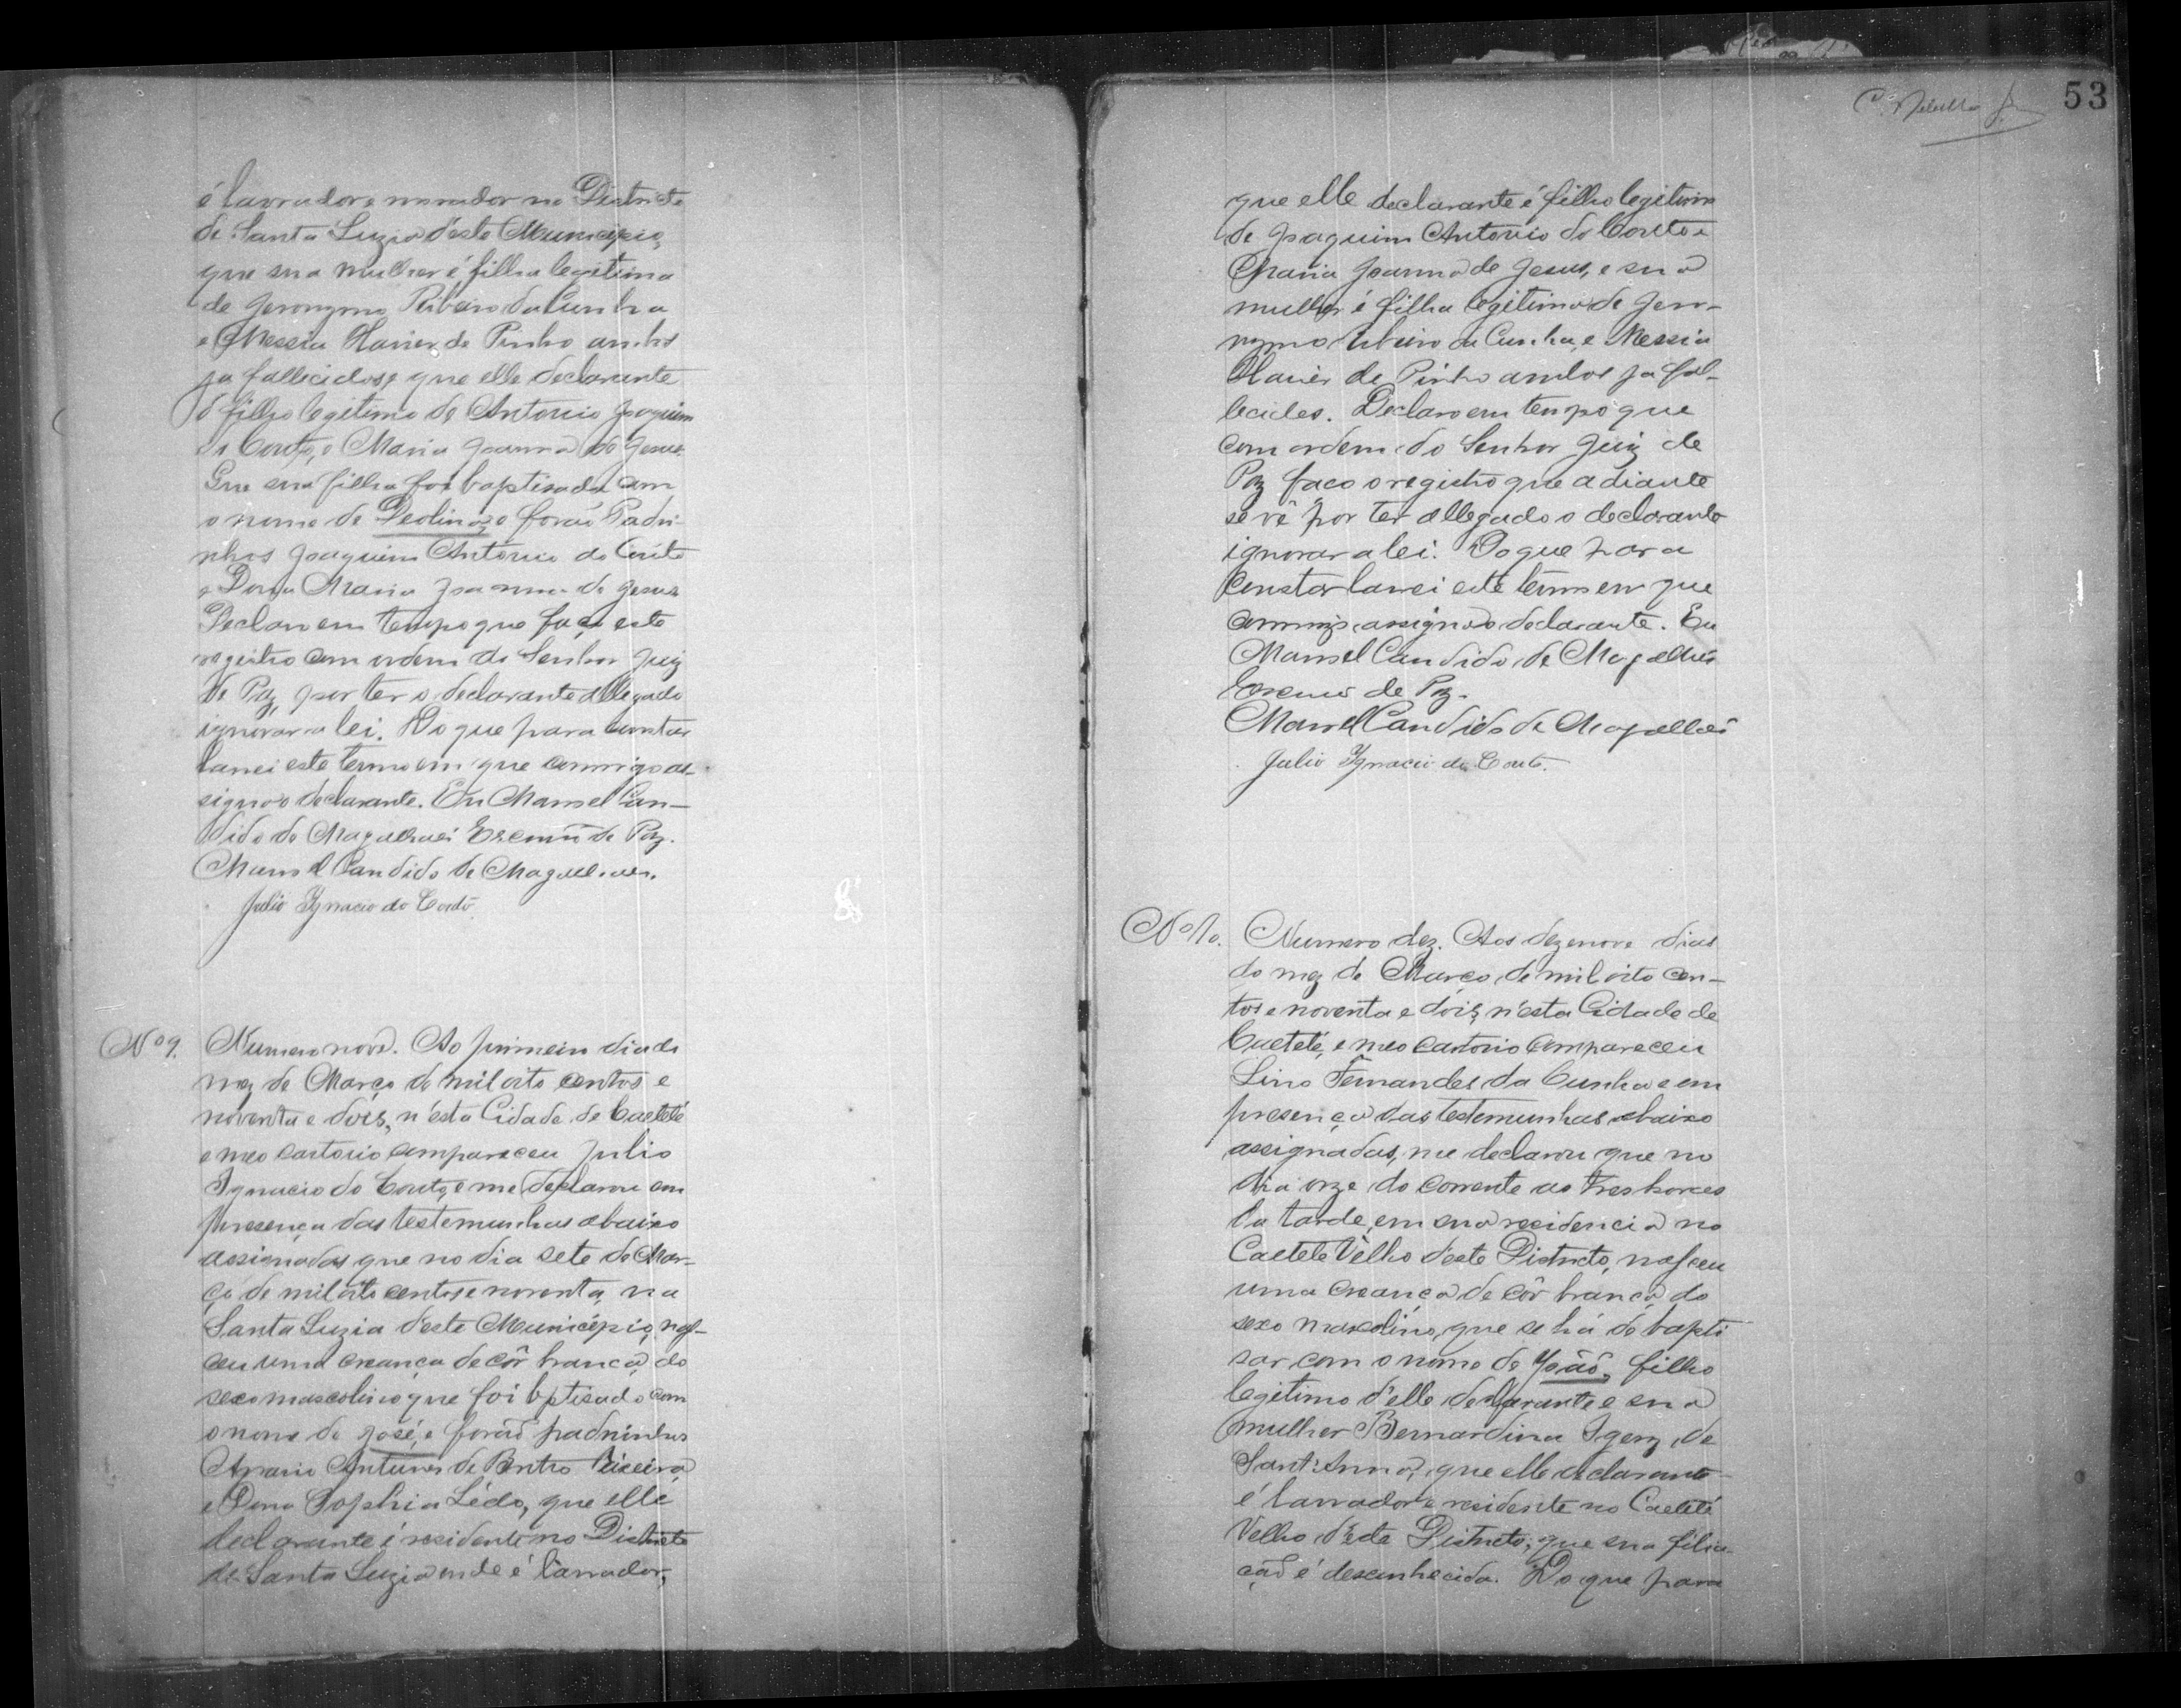 é lavrador e morador no Districto
de Santa Luzia d'este Municipio,
que sua mulher é filha legitima
de Jeronymo Ribeiro da Cunha
e Messia Xavier de Pinho ambos
ja fallecidos, que elle declarante
é filho legitimo de Antonio Joaquim
do Couto, e Maria Joanna de Jesus.
Que sua filha foi baptisada com
o nome de Deolinda, e forão Padri-
nhos Joaquim Antonio do Couto
e Dona Maria Joanna de Jesus
Declaro em tempo que faço este
registro com ordem do Senhor Juiz
de Paz, por ter o declarante allegado
ignorar a lei. Do que para constar
lancei este termo em que commigo as-
signa o declarante. Eu Manoel Can-
dido de Magalhães Escrivão de Paz.
Manoel Candido de Magalhães.
Julio Ygnacio do Couto.
Nº 9. Numero nove. Ao primeiro dia do
mez de Março de mil oito centos e
noventa e dois, n'esta Cidade de Caeteté
e meo cartorio compareceu Julio
Ignacio do Couto, e me declarou em
presença das testemunhas abaixo
assignadas que no dia sete de Mar-
ço de mil oito centos e noventa, na
Santa Luzia d'este Municipio, nas-
ceu uma creança de côr branca, do
sexo mascolino que foi bptisado com
o nome de José, e forão padrinhos
Antunes de Teixeira
e Dona Sophia Lédo, que elle
declarante é residente no Districto
de Santa Luzia onde é lavrador,
53
que elle declarante é filho legitimo
de Joaquim Antonio do Couto e
Maria Joanna de Jesus, e sua
mulher é filha legitima de Jero-
nymo Ribeiro da Cunha, e Messia
Xavier de Pinho ambos ja fal-
lecidos. Declaro em tempo que
com ordem do Senhor Juiz de
Paz faco o registro que adiante
se vê por ter allegado o declarante
ignorar a lei. Do que para
constar lancei este termo em que
commigo assigna o declarante. Eu
Manoel Candido de Magalhães
Escrivão de Paz.
Manoel Candido de Magalhães
Julio Ygnacio do Couto.
Nº 10. Numero dez. Aos dezenove dias
do mez de Março de mil oito cen-
tos e noventa e dois, n'esta Cidade de
Caeteté, e meo cartorio compareceu
Lino Fernandes da Cunha e em
presença das testemunhas abaixo
assignadas, me declarou que no
dia onze do corrente as tres horas
da tarde, em sua residencia no
Caeteté Velho d'este Districto, nasceu
uma creança de côr branca do
sexo mascolino, que se há de bapti
sar com o nome de João, filho
legitimo d'elle declarante e sua
mulher Bernardina de
Sant'Anna, que elle declarante
é lavrador e residente no Caeteté
Velho d'este Districto, que sua filia-
ção é desconhecida. Do que para